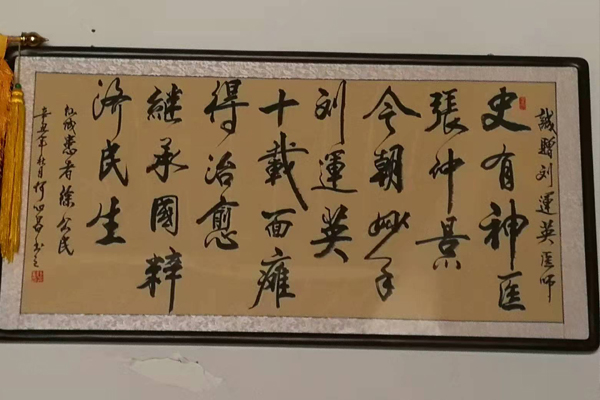 誠贈刘運英医师
史有神医
張仲景
今朝妙手
刘運英
十載面癱
得治愈
継承國粹
济民生
患者徐公民
辛丑年秋月